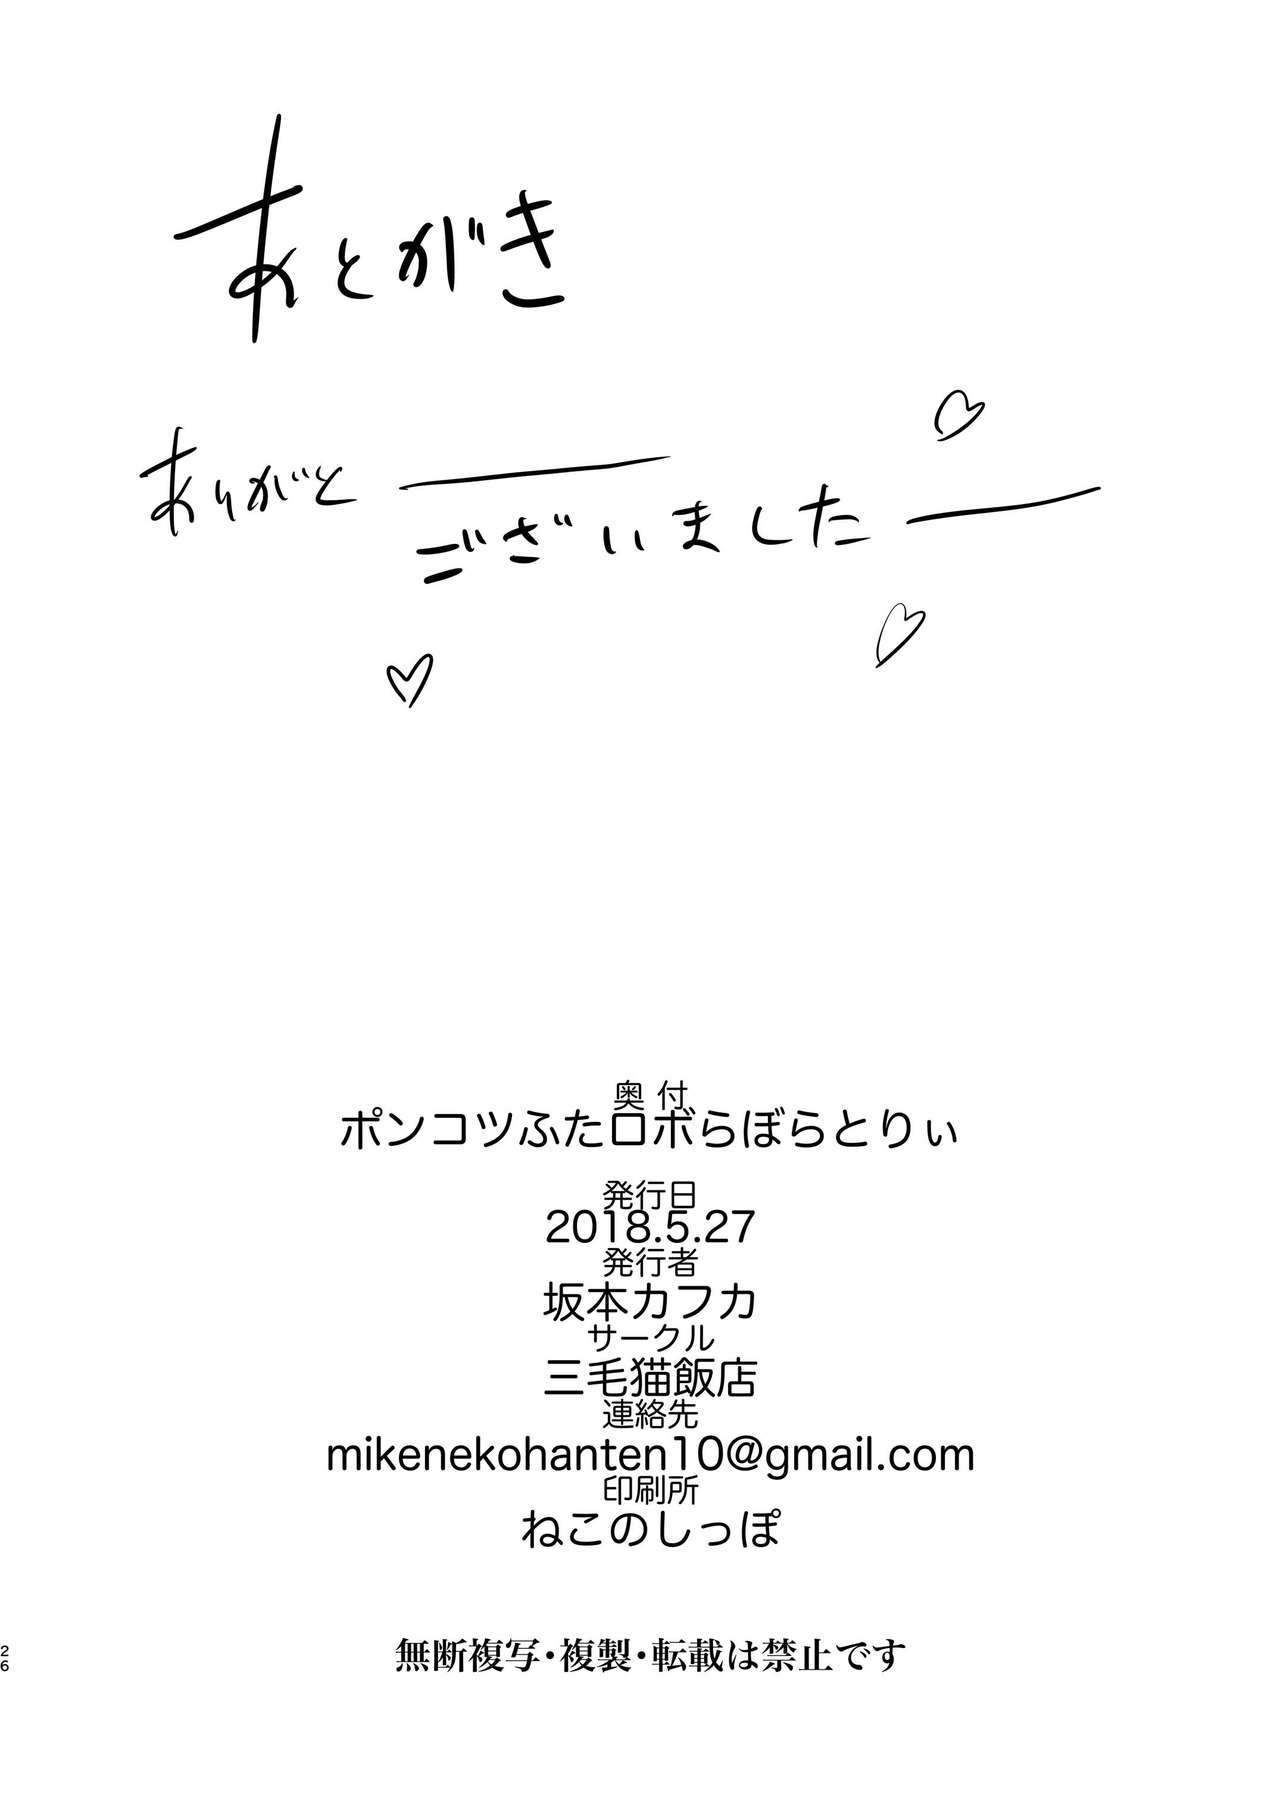 あとがき
ありがとー
ございましたー
奥付
ポンコツふたロボらぼらとりぃ
発行日
2018.5.27
発行者
坂本カフカ
サークル
三毛猫飯店
連絡先
mikenekohanten10@gmail.com
印刷所
ねこのしっぽ
無断複写・複製・転載は禁止です
26